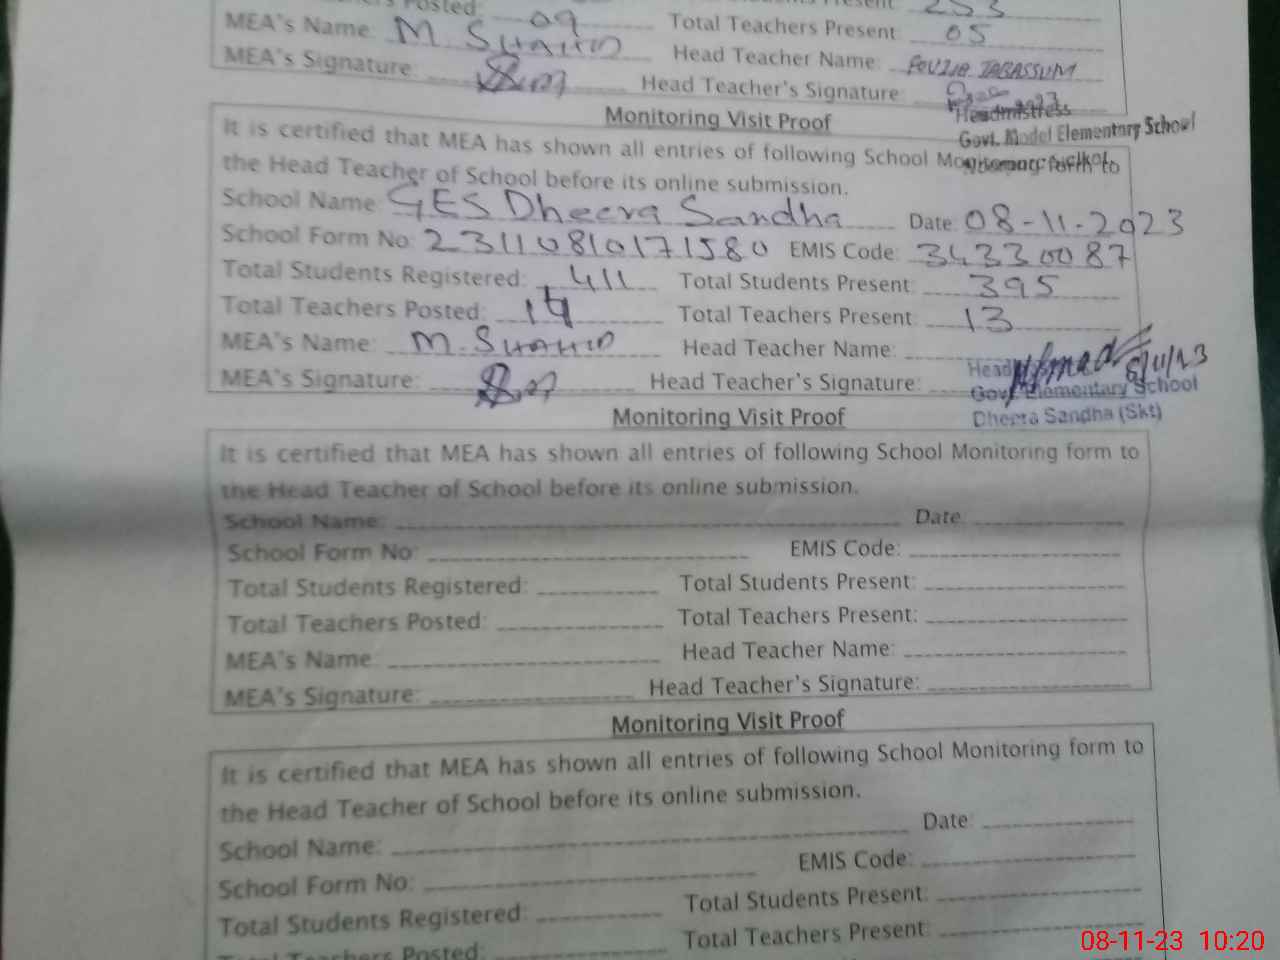 Teachers Posted: 09 Students Present: 253
MEA's Name: M. SHAHID Total Teachers Present: 05
MEA's Signature: Head Teacher Name: FOUZIA TABASSUM
Head Teacher's Signature:
Headmistress
Monitoring Visit Proof
Govt. Model Elementary School
It is certified that MEA has shown all entries of following School Monitoring form to
the Head Teacher of School before its online submission.
School Name: GES Dheera Sandha Date: 08-11-2023
School Form No: 23110810171580 EMIS Code: 34330087
Total Students Registered: 411 Total Students Present: 395
Total Teachers Posted: 14 Total Teachers Present: 13
MEA's Name: M. SHAHID Head Teacher Name:
Head 8/11/23
MEA's Signature: Head Teacher's Signature: Govt. Elementary School
Dheera Sandha (Skt)
Monitoring Visit Proof
It is certified that MEA has shown all entries of following School Monitoring form to
the Head Teacher of School before its online submission.
School Name: Date:
School Form No: EMIS Code:
Total Students Registered: Total Students Present:
Total Teachers Posted: Total Teachers Present:
MEA's Name: Head Teacher Name:
MEA's Signature: Head Teacher's Signature:
Monitoring Visit Proof
It is certified that MEA has shown all entries of following School Monitoring form to
the Head Teacher of School before its online submission.
School Name: Date:
School Form No: EMIS Code:
Total Students Registered: Total Students Present:
Total Teachers Posted: Total Teachers Present:
08-11-23 10:20